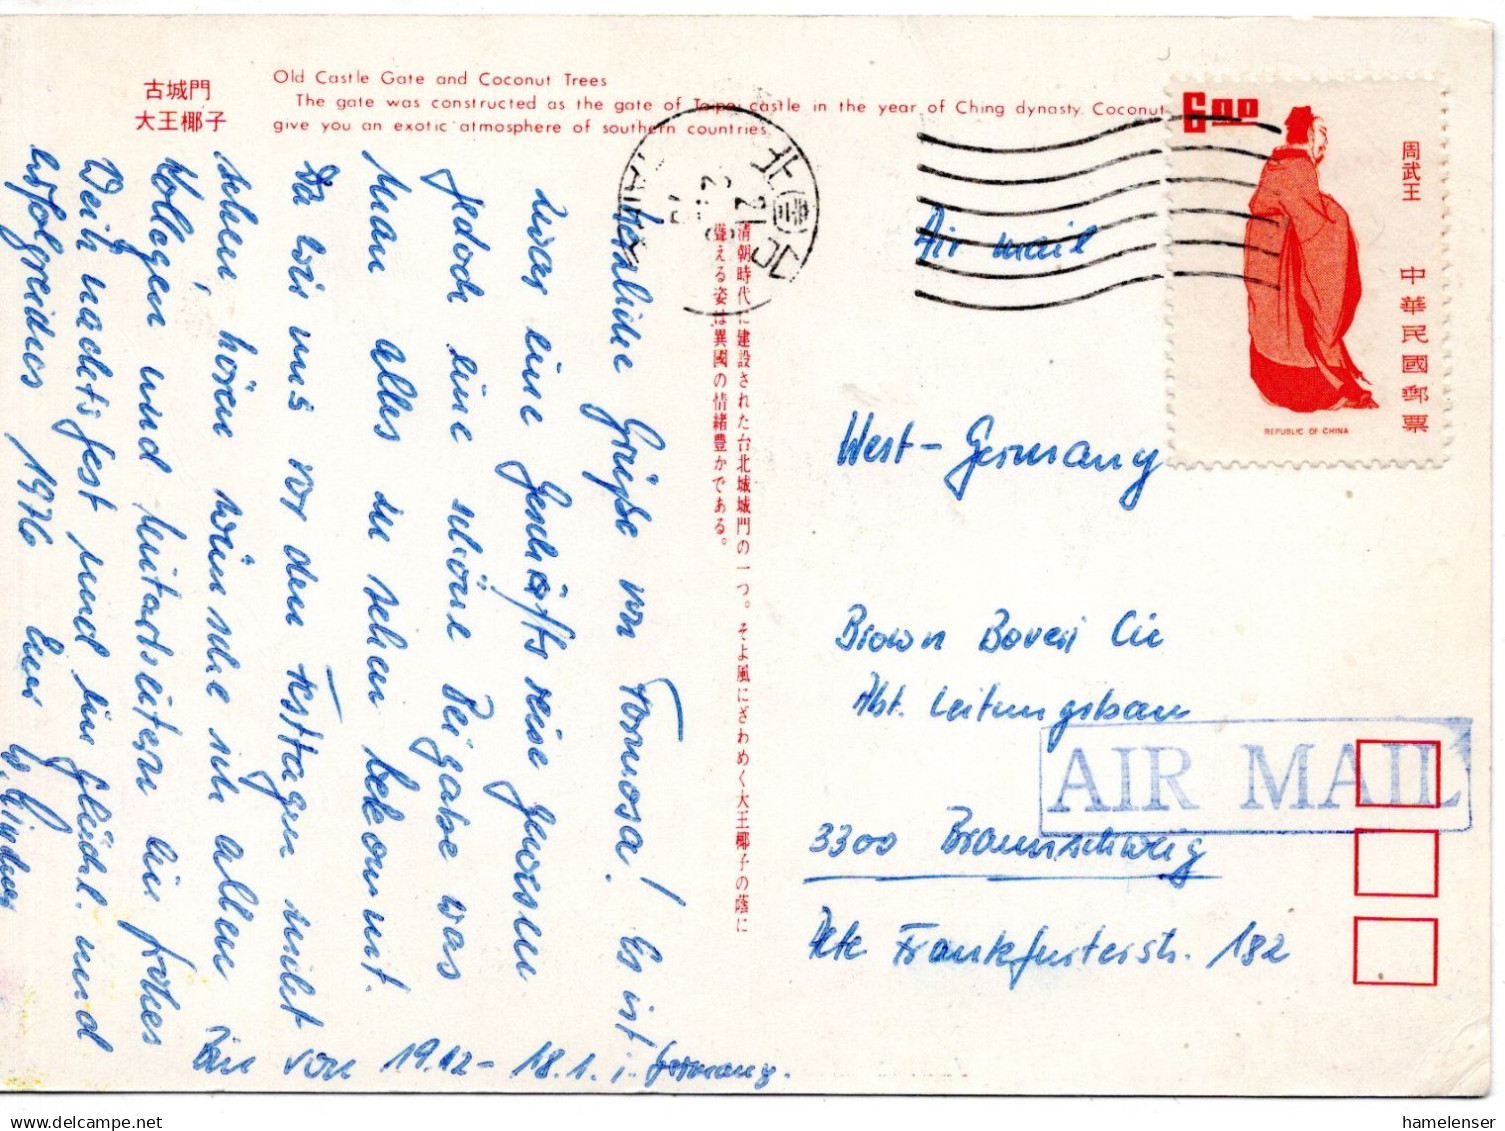 古城門
大王椰子
Old Castle Gate and Coconut Trees
The gate was constructed as the gate of Taipei castle in the year of Ching dynasty. Coconut
give you an exotic atmosphere of southern countries.
清朝時代に建設された台北城城門の一つ。そよ風にざわめく大王椰子の蔭に
聳える姿は異國の情緒豊かである。
Herzliche Grüße von Formosa! Es ist
zwar eine Geschäftsreise gewesen
jedoch eine schöne Beigabe was
man alles zu sehen bekommt.
Da wir uns vor den Festtagen nicht
sehen, hören wünsche ich allen
Kollegen und Mitarbeitern ein frohes
Weihnachtsfest und ein glückl. und
erfolgreiches 1976 Euer
Bin von 19.12 - 18.1. i. Germany.
北
TAIPEI
6.00
周武王
中華民國郵票
REPUBLIC OF CHINA
Air mail
West-Germany
Brown Boveri Cie
Abt. Leitungsbau
AIR MAIL
3300 Braunschweig
Frankfurterstr. 182
hamelenser